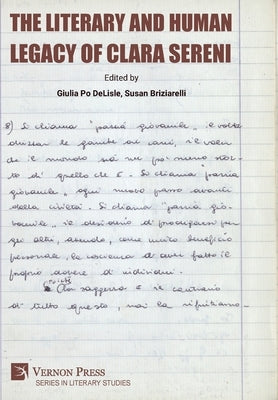 THE LITERARY AND HUMAN
LEGACY OF CLARA SERENI
Edited by
Giulia Po DeLisle, Susan Briziarelli
8) Si chiama "pazzia giovanile" il voler
drizzar le gambe ai cani, il voler
che il mondo sia un po' meno stor-
to di quello che è. Si chiama "pazzia
giovanile" ogni nuovo passo avanti
della civiltà. Si chiama "pazzia gio-
vanile" il desiderio di prodigarsi per
gli altri, avendo, come unico beneficio
personale, la coscienza di aver fatto il
proprio dovere di individui.
poiché
saggezza è il contrario
di tutto questo, noi la rifiutiamo.
VERNON PRESS
SERIES IN LITERARY STUDIES